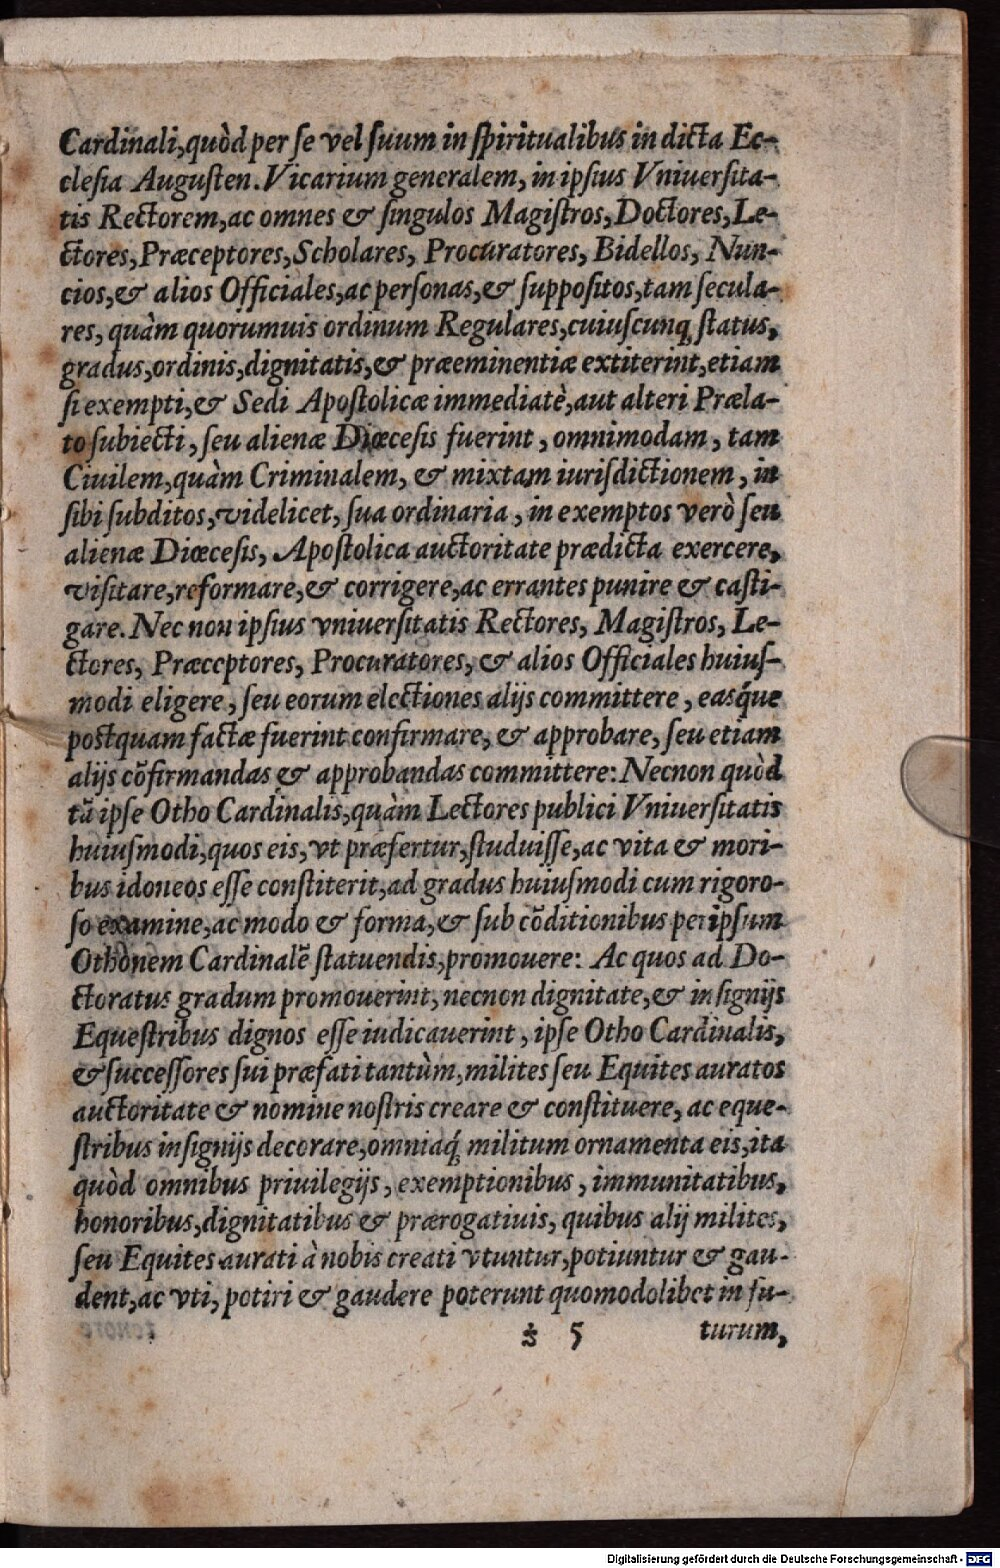 Cardinali,quòd per ſe vel ſuum in ſpiritualibus in dicta Ec-
cleſia Auguſten. Vicarium generalem, in ipſius Vniuerſita-
tis Rectorem, ac omnes & ſingulos Magiſtros, Doctores, Le-
ctores, Præceptores, Scholares, Procuratores, Bidellos, Nun-
cios, & alios Officiales, ac perſonas, & ſuppoſitos, tam ſecula-
res, quàm quorumuis ordinum Regulares, cuiuſcunq; ſtatus,
gradus, ordinis, dignitatis, & præeminentiæ extiterint, etiam
ſi exempti, & Sedi Apoſtolicæ immediatè, aut alteri Præla-
to ſubiecti, ſeu alienæ Diœceſis fuerint, omnimodam, tam
Ciuilem, quàm Criminalem, & mixtam iuriſdictionem, in
ſibi ſubditos, videlicet, ſua ordinaria, in exemptos verò ſeu
alienæ Diœceſis, Apoſtolica auctoritate prædicta exercere,
viſitare, reformare, & corrigere, ac errantes punire & caſti-
gare. Nec non ipſius vniuerſitatis Rectores, Magiſtros, Le-
ctores, Præceptores, Procuratores, & alios Officiales huiuſ-
modi eligere, ſeu eorum electiones alijs committere, easq́ue
postquam factæ fuerint confirmare, & approbare, ſeu etiam
alijs cõfirmandas & approbandas committere: Necnon quòd
tã ipſe Otho Cardinalis, quàm Lectores publici Vniuerſitatis
huiuſmodi, quos eis, vt præfertur, ſtuduiſſe, ac vita & mori-
bus idoneos eſſe conſtiterit, ad gradus huiuſmodi cum rigoro-
ſo examine, ac modo & forma, & ſub cõditionibus per ipſum
Othonem Cardinalẽ ſtatuendis, promouere: Ac quos ad Do-
ctoratus gradum promouerint, necnon dignitate, & inſignijs
Equeſtribus dignos eſſe iudicauerint, ipſe Otho Cardinalis,
& ſucceſſores ſui præfati tantùm, milites ſeu Equites auratos
auctoritate & nomine noſtris creare & conſtituere, ac eque-
ſtribus inſignijs decorare, omniaq́; militum ornamenta eis, ita
quòd omnibus priuilegijs, exemptionibus, immunitatibus,
honoribus, dignitatibus & prærogatiuis, quibus alij milites,
ſeu Equites aurati à nobis creati vtuntur, potiuntur & gau-
dent, ac vti, potiri & gaudere poterunt quomodolibet in fu-
5 turum,
Digitalisierung gefördert durch die Deutsche Forschungsgemeinschaft - DFG